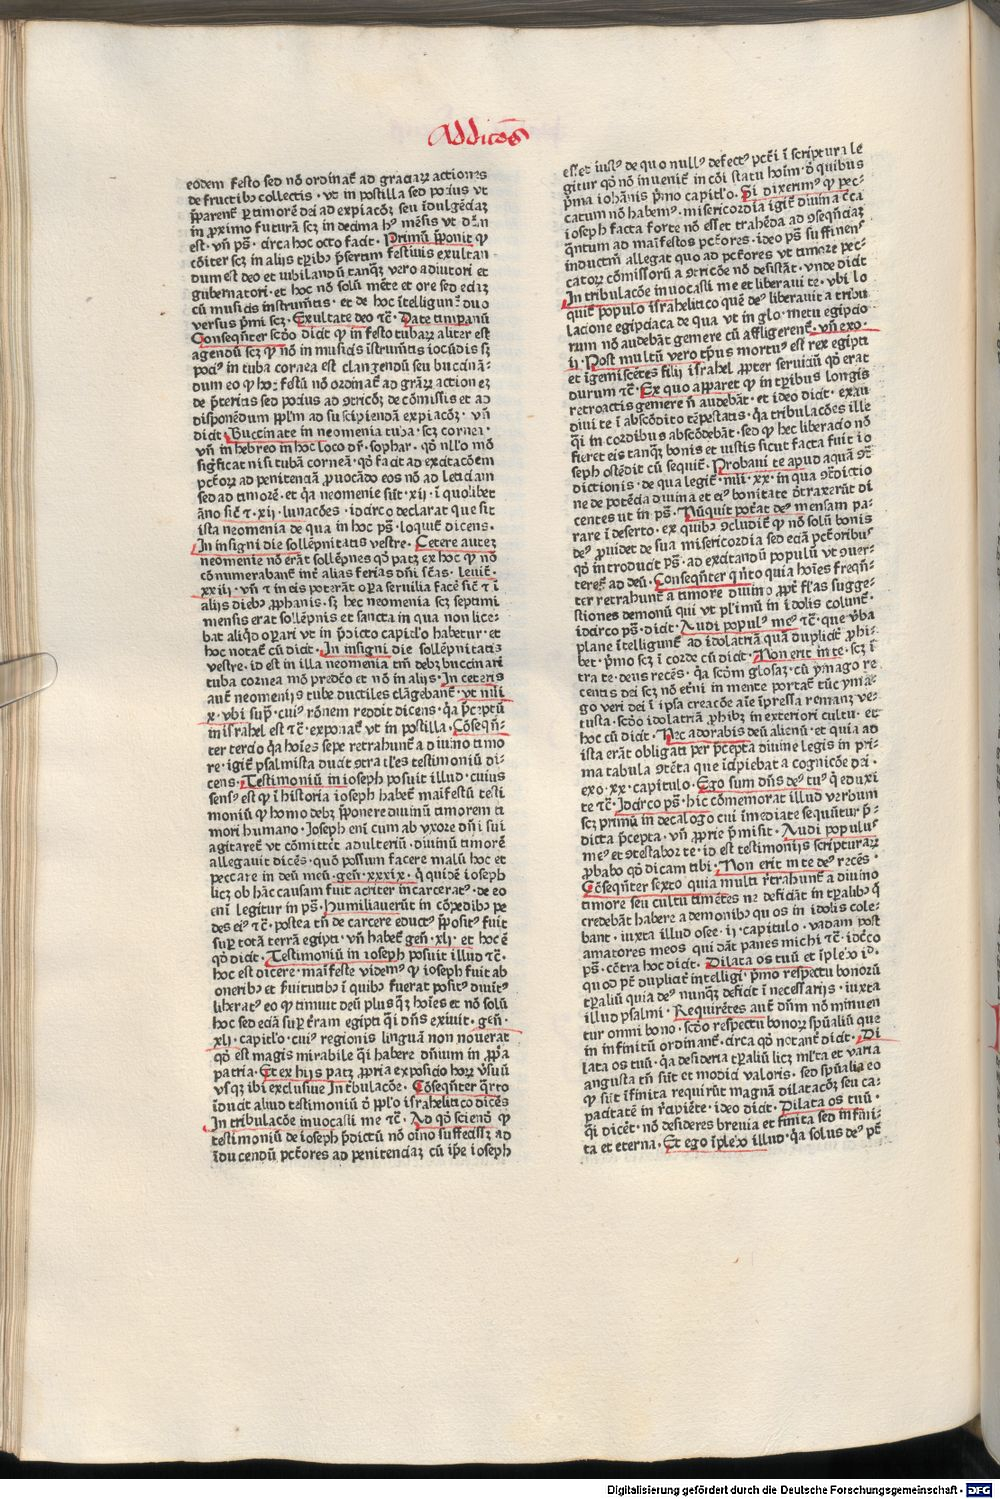 Addicões
eodem festo sed nõ ordinat᷑ ad graꝗaꝝ actiones
de fructibꝰ collectis · vt in postilla sed pocius vt
p̃parent᷑ ꝑ timorẽ dei ad expiacõꝫ seu ĩdulgẽciaꝫ
in ꝓximo futurã scꝫ in decima hꝰ mẽsis vt dc̃m
est · vñ ps̃ · circa hoc octo facit · Primũ p̃ponit ꝙ
cõiter scꝫ in alijs tꝑibꝰ p̃sertim festiuis exultan
dum est deo et iubilandũ tanqꝫ vero adiutori et
gubernatori · et hoc nõ solũ mẽte et ore sed eciã
cũ musicis instrumẽtis · et de hoc ĩtelligunt᷑ duo
versus p̃mi scꝫ · Exultate deo τc̃ · Date timpanũ
Consequẽter scd̃o dicit ꝙ in festo tubaꝝ aliter est
agendũ scꝫ ꝙ nõ in musicis ĩstrumẽtis iocũdis sꝫ
pociꝰ in tuba cornea est clangendũ seu buccinã-
dum eo ꝙ hoc festũ nõ ordinat᷑ ad grãꝝ actionez
de p̃teritis sed pocius ad ꝯtricõꝫ de cõmissis et ad
disponẽdum ppl̃m ad suscipiendã expiacõꝫ · vñ
dicit · Buccinate in neomenia tuba · scꝫ cornea ·
vñ in hebreo in hoc loco dr̃ · sophar · qd̃ nll̃o mõ
sig̃ficat nisi tubã corneã · qd̃ facit ad excitacõem
pctõꝝ ad penitenciã ꝓuocãdo eos nõ ad leticiam
sed ad timorẽ · et qꝛ neomenie sũt · xij · ĩ quolibet
ãno sic̃ τ · xij · lunacões · idcirco declarat que sit
ista neomenia de qua in hoc ps̃ · loquit᷑ dicens ·
In insigni die sollẽpnitatis vestre · Cetere autez
neomenie nõ erãt sollẽpnes qd̃ patꝫ ex hoc ꝙ nõ
cõnumerabant᷑ int᷑ alias ferias dñi sc̃as · leuit᷑ ·
xxiij · vñ τ in eis poterãt oꝑa seruilia facẽ sic̃ τ ĩ
alijs diebꝰ ꝓphanis · sꝫ hec neomenia scꝫ septimi
mensis erat sollẽpnis et sancta in qua non lice-
bat aliqd̃ oꝑari vt in p̃dicto capitl̃o habetur · et
hoc notat᷑ cũ dicit · In insigni die sollẽpnitatis
vestre · id est in illa neomenia tm̃ debꝫ buccinari
tuba cornea mõ predc̃o et nõ in alijs · In ceteris
aut᷑ neomenijs tube ductiles clãgebant᷑ · vt nũi
x · vbi sup̃ · cuiꝰ rõnem reddit dicens · qꝛ p̃ceptũ
in israhel est τc̃ · exponat᷑ vt in postilla · Cõseqñ-
ter tercio qꝛ hoĩes sepe retrahunt᷑ a diuino timo
re · igit᷑ psalmista ducit ꝯtra tl̃es testimoniũ di-
cens · Testimoniũ in ioseph posuit illud · cuius
sensꝰ est ꝙ ĩ historia ioseph habet᷑ maĩfestũ testi
moniũ ꝙ homo debꝫ p̃ponere diuinũ timorem ti
mori humano · Joseph eni᷑ cum ab vxore dñi sui
agitaret᷑ vt cõmittet᷑ adulteriũ · diuinũ timorẽ
allegauit dicẽs · quõ possum facere malũ hoc et
peccare in deũ meũ · geñ · xxxix · qꝛ quidẽ ioseph
licꝫ ob hãc causam fuit acriter incarceratꝰ · de eo
eni᷑ legitur in ps̃ · Humiliauerũt in cõpedibꝰ pe
des eiꝰ τc̃ · postea tñ de carcere eductꝰ p̃positꝰ fuit
suꝑ totã terrã egipti · vñ habet᷑ geñ · xlj · et hoc ẽ
qd̃ dicit · Testimoniũ in ioseph posuit illud τc̃ ·
hoc est dicere · maĩfeste videmꝰ ꝙ ioseph fuit ab
oneribꝰ et ẜuitutibꝰ ĩ quibꝰ fuerat positꝰ diuitꝰ
liberatꝰ eo ꝙ timuit deũ plusqꝫ hoĩes et nõ solũ
hoc sed eciã suꝑ t᷑ram egipti qꝛ dñs exiuit · geñ ·
xlj · capitl̃o · cuiꝰ regionis linguã non nouerat
qd̃ est magis mirabile qꝛ habere dñium in ꝓp̃a
patria · Et ex hijs patꝫ ꝓpria exposicio horꝝ v̓suũ
vsqꝫ ibi exclusiue In tribulacõe · Cõsequẽter q̃rto
ĩducit aliud testimoniũ d̃ ppl̃o israhelitico dicẽs
In tribulacõe inuocasti me τc̃ · Ad qd̃ sciend̃ ꝙ
testimoniũ de ioseph p̃dictũ nõ oĩno suffecissꝫ ad
ĩducendũ pctõres ad penitenciaꝫ cũ ip̃e ioseph
esset iustꝰ de quo nullꝰ defectꝰ pct̃i ĩ scriptura le
gitur qd̃ nõ inuenit᷑ in cõi statu hoĩm · d̃ quibus
p̃ma iohãnis p̃mo capitl̃o · Si dixerimꝰ ꝙ pec-
catum nõ habemꝰ · misericordia igit᷑ diuina c̃ca
ioseph facta forte nõ esset trahẽda ad ꝯsequẽciaꝫ
quãtum ad maĩfestos pctõres · ideo ps̃ · sufficiens
inductiũ allegat quo ad pctõres vt timore pec-
catoꝝ cõmissorũ a ꝯtricõe nõ desistãt · vnde dicit
In tribulacõe inuocasti me et liberaui te · vbi lo
quit᷑ populo israhelitico quẽ deꝰ liberauit a tribu
lacione egipciaca de qua vt in glo · metu egipcio
rum nõ audebãt gemere cũ affligerent᷑ · vñ exo ·
ij · Post multũ vero tp̃us mortuꝰ est rex egipti
et ĩgemiscẽtes filij isrãhel ꝓpter seruiciũ qd̃ erat
durum τc̃ · Ex quo apparet ꝙ in tꝑibus longis
retroactis gemere ñ audebãt · et ideo dicit · exau
diui te ĩ abscõdito tẽpestatis · qꝛ tribulacões ille
qꝛ in cordibus abscõdebãt · sed ꝙ hec liberacio nõ
fieret eis tanqꝫ bonis et iustis sicut facta fuit io
seph ostẽdit cũ sequit᷑ · Probaui te apud aquã ꝯt᷑
dictionis · de qua legit᷑ · nũi · xx · in qua ꝯt᷑dictio
ne de potẽcia diuina et eiꝰ bonitate dt̃raxerũt di
centes vt in ps̃ · Nũquit poterat deꝰ mensam pa-
rare ĩ deserto · ex quibꝰ ꝯcludit᷑ ꝙ nõ solũ bonis
deꝰ ꝓuidet de sua misericordia sed eciã pctõribus
qd̃ introducit ps̃ · ad excitandũ populũ vt ꝯuer-
teret᷑ ad deũ · Consequẽter q̃nto quia hoĩes freq̃n-
ter retrahunt᷑ a timore diuino ꝓpt᷑ fl̃as sugge-
stiones demonũ qui vt pl̃imũ in idolis colunt᷑ ·
idcirco ps̃ · dicit · Audi populꝰ meꝰ τc̃ · que v̓ba
plane ĩtelligunt᷑ ad idolatriã quã duplicit᷑ ꝓhi-
bet · p̃mo scꝫ ĩ corde cũ dicit · Non erit in te · scꝫ ĩ
tra te · deus recẽs · qꝛ scd̃m glosaꝫ · cũ ymago re
centis dei scꝫ nõ et᷑ni in mente portat᷑ tũc yma-
go veri dei ĩ ip̃a creacõe aĩe ĩpressa remanꝫ ve-
tusta · scd̃o idolatriã ꝓhibꝫ in exteriori cultu · et
hoc cũ dicit · Nec adorabis deũ alienũ · et quia ad
ista erãt obligati per p̃cepta diuine legis in pri-
ma tabula ꝯtẽta que ĩcipiebat a cognicõe dei ·
exo · xx · capitulo · Ego sum dñs deꝰ tuꝰ qꝛ eduxi
te τc̃ · Jdcirco ps̃ · hic cõmemorat illud verbum
scꝫ primũ in decalogo cui ĩmediate sequũtur p̃-
dicta p̃cepta · vñ ꝓprie p̃misit · Audi populus
meꝰ et ꝯtestabor te · id est testimonijs scripturaꝝ
ꝓbabo qd̃ dicam tibi · Non erit in te deꝰ recẽs ·
Cõseqñter sexto quia multi rt̃rahunt᷑ a diuino
timore seu cultu timẽtes ne deficiãt in tp̃alibꝰ q̃
credebãt habere a demonibꝰ quos in idolis cole-
bant · iuxta illud osee · ij · capitulo · vadam post
amatores meos qui dãt panes michi τc̃ · idcc̃o
ps̃ · cõtra hoc dicit · Dilata os tuũ et ĩplebo id ·
quod pt᷑ duplicit᷑ intelligi · p̃mo respectu bonorũ
tp̃aliũ quia deꝰ nunqꝫ deficit ĩ necessarijs · iuxta
illud psalmi · Requirẽtes aut᷑ dñm nõ minuen
tur omni bono · scd̃o respectu bonoꝝ spũaliũ que
in infinitũ ordinant᷑ · circa qd̃ notant᷑ dicit · Di
lata os tuũ · qꝛ desideria tp̃aliũ licꝫ ml̃ta et varia
angusta tñ sũt et modici valoris · sed spũalia eo
ꝙ sũt ĩfinita requirũt magnã dilatacõꝫ seu ca-
pacitatẽ in r̃cipiẽte · ideo dicit · Dilata os tuũ ·
qꝛi dicẽt · nõ desideres breuia et finita sed infini-
ta et eterna · Et ego ĩplebo illud · qꝛ solus deꝰ pt᷑
Digitalisierung gefördert durch die Deutsche Forschungsgemeinschaft - DFG